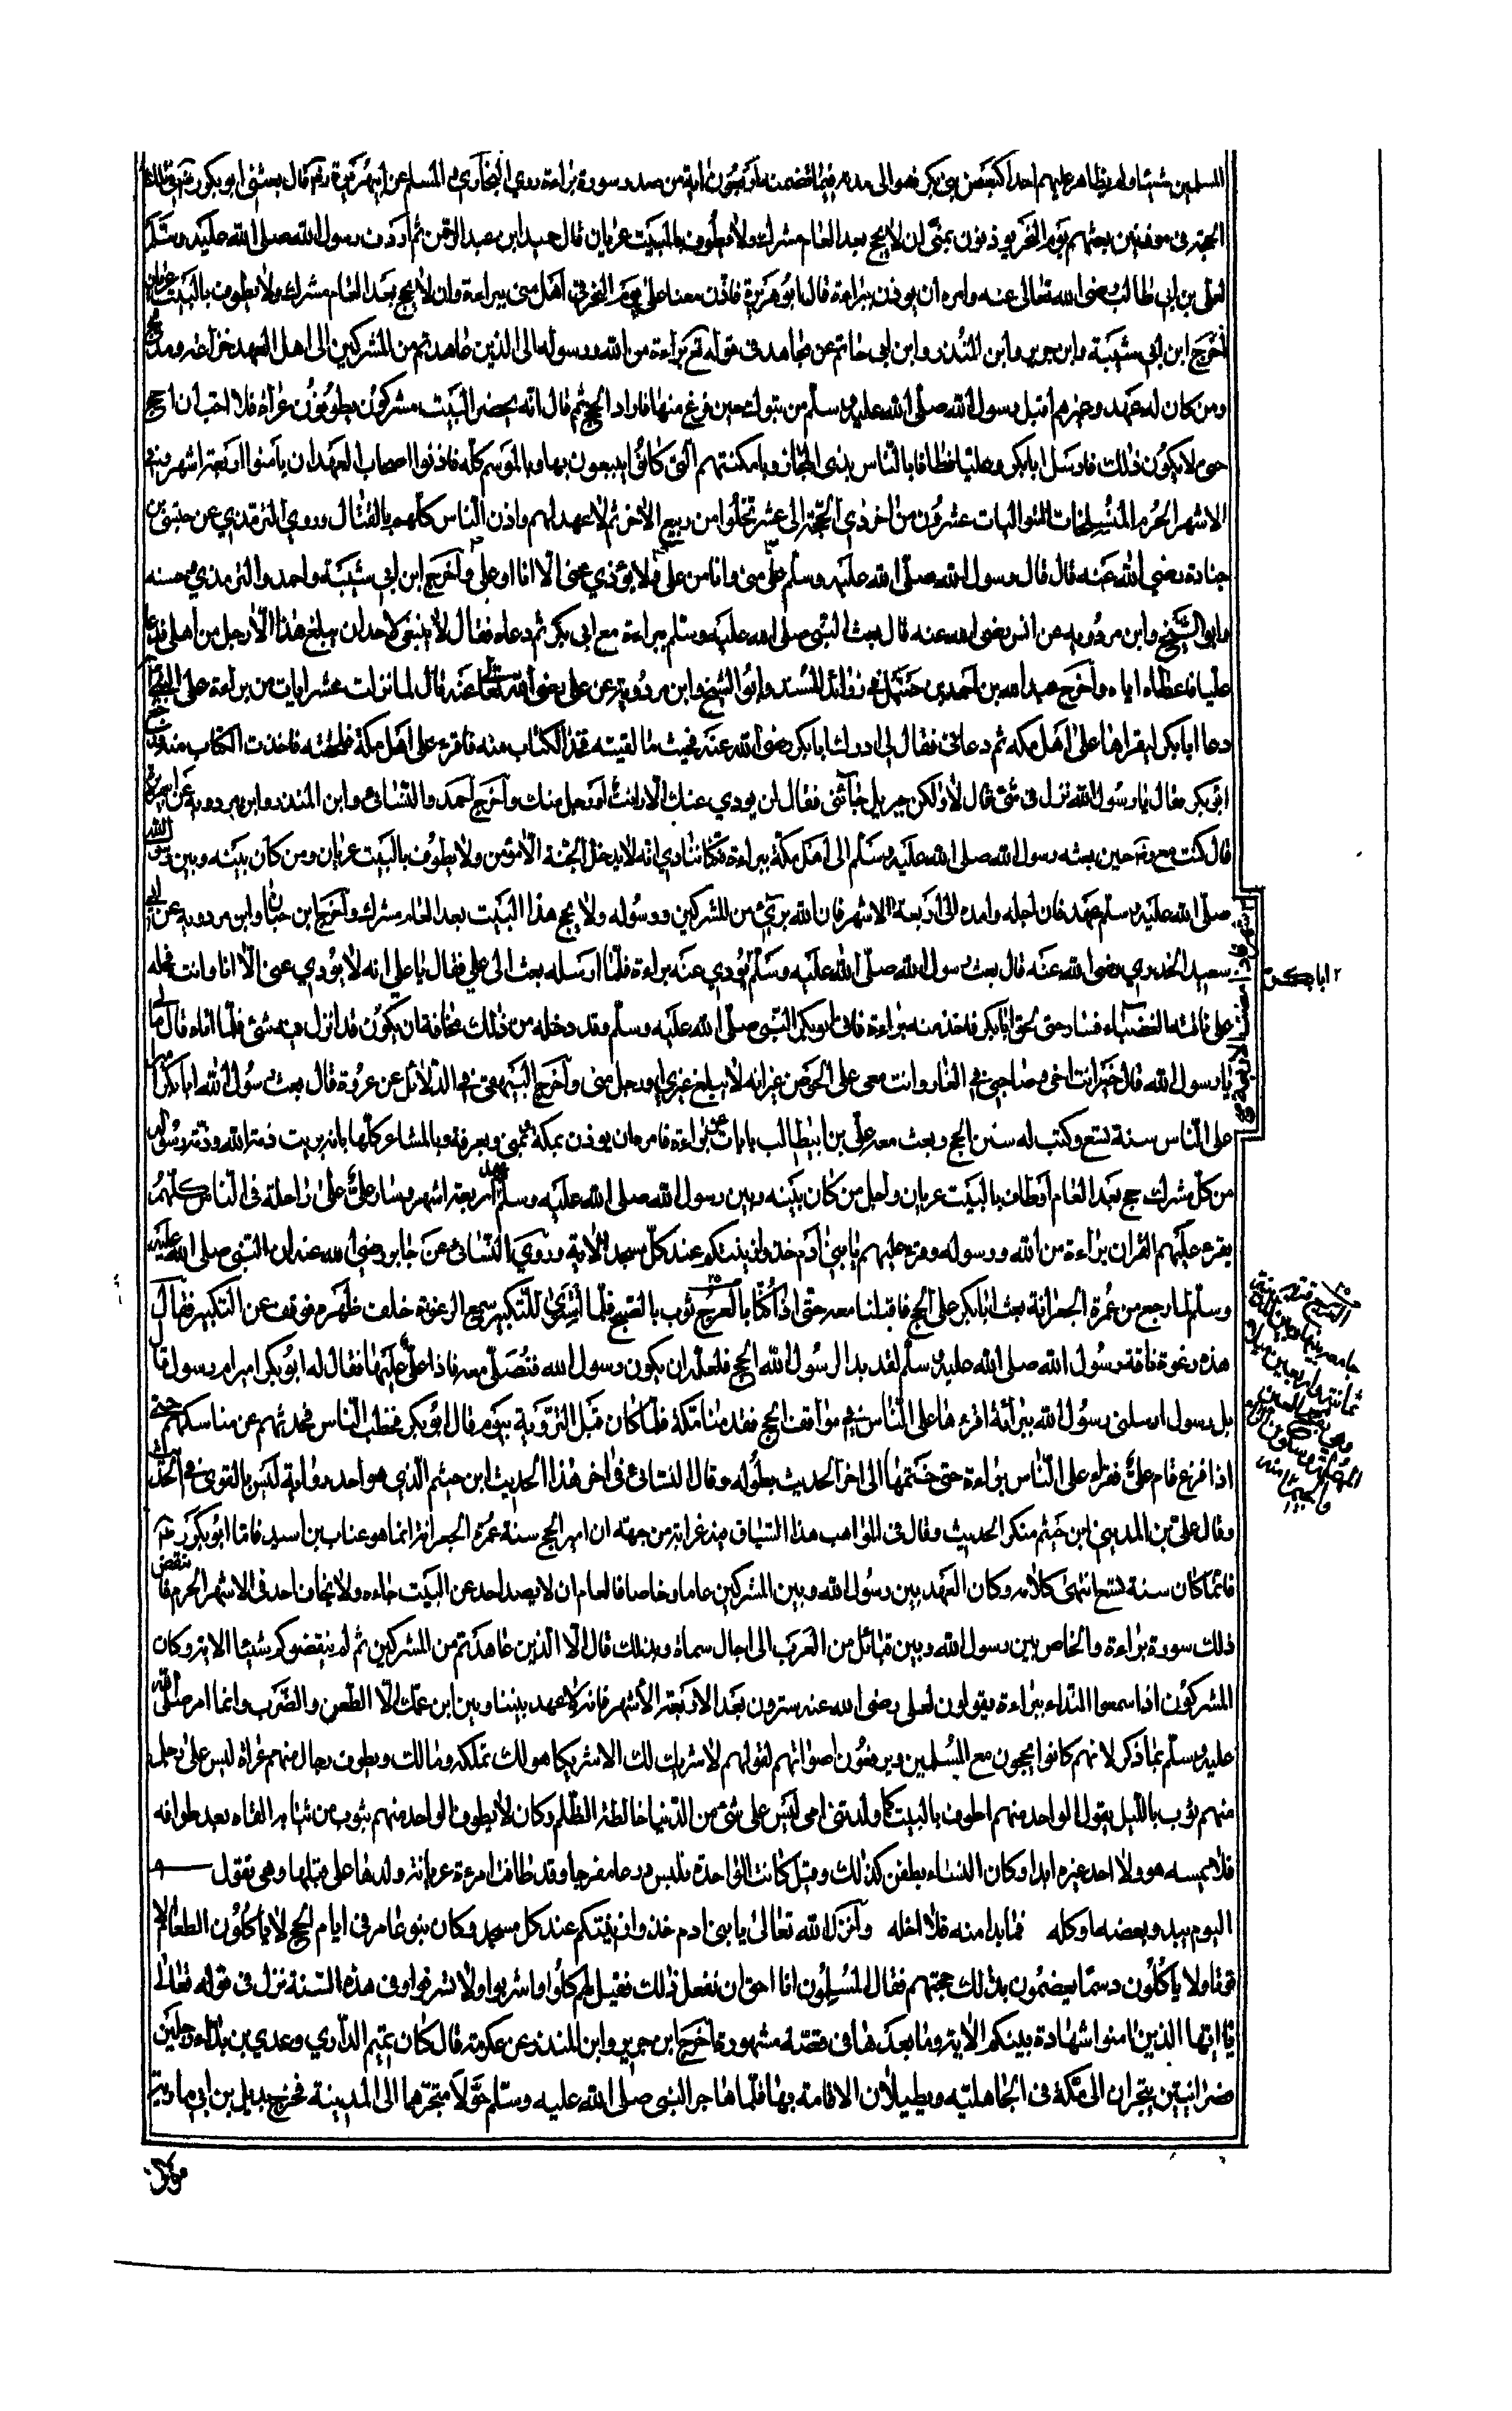 المسلمين شيئا ولم يظاهر عليهم احدا كبعض بني بكر فهو الى مدته فيما تضمنه اربعون اية من صدر سورة براءة روي البخاري و المسلم عن ابيهريرة رضـ قال بعثني ابو بكر رضـ في تلك
الحجة في موذنين بعثهم يوم النحر يوذنون بمنى ان لا يحج بعد العام مشرك ولا يطوف بالبيت عريان قال حميد ابن عبد الرحمن ثم اردف رسول الله صلى الله عليه وسلم
لعلي بن ابي طالب رضى الله تعالى عنه وامره ان يوذن ببراءة قال ابو هريرة فاذن معنا علي يوم النحر في اهل منى ببراءة وان لا يحج بعد العام مشرك ولا يطوف بالبيت عريان
اخرج ابن ابي شيبة وابن جرير وابن المنذر وابن ابي حاتم عن مجاهد في قوله تع براءة من الله ورسوله الى الذين عاهدتم من المشركين الى اهل العهد خزاعة ومدلج
ومن كان له عهد وغيرهم اقبل رسول الله صلى الله عليه وسلم من تبوك حين فرغ منها فاراد الحج ثم قال انه يحضر البيت مشركون يطوفون عراة فلا احب ان احج
حتى لا يكون ذلك فارسل ابا بكر وعليا فطافا بالناس بذي المجاز وبامكنتهم التي كانوا يبيعون بها وبالموسم كله فاذنوا اصحاب العهد ان يامنوا اربعة اشهر وهي
الاشهر الحرم المنسلخات المتواليات عشرون من اخر ذي الحجة الى عشر تخلوا من ربيع الاخر ثم لا عهد لهم واذن الناس كلهم بالقتال وروي الترمذي عن حبشي بن
جنادة رضي الله عنه قال قال رسول الله صلى الله عليه وسلم علي مني وانا من علي ولا يؤدي عني الا انا او علي واخرج ابن ابي شيبة واحمد والترمذي وحسنه
وابو الشيخ وابن مردويه عن انس رضى الله عنه قال بعث النبي صلى الله عليه وسلم ببراءة مع ابي بكر ثم دعاه فقال لا ينبغي لاحد ان يبلغ هذا الا رجل من اهلي فدعا
عليا فاعطاه اياه واخرج عبد الله بن احمد بن حنبل في زوائد المسند وابو الشيخ وابن مردويه عن علي رضى الله تعالى عنه قال لما نزلت عشر ايات من براءة على النبي
دعا ابا بكر ليقراها على اهل مكه ثم دعاني فقال لي ادرك ابا بكر رضى الله عنه فحيث ما لقيته فخذ الكتاب منه فاقره على اهل مكة فلحقته فاخذت الكتاب منه ورجع
ابو بكر فقال يا رسول الله نزل في شئ قال لا ولكن جبريل جاءني فقال لن يودي عنك الا انت او رجل منك واخرج احمد والنسائي وابن المنذر وابن مردويه عن ابي هريرة
قال كنت مع علي حين بعثه رسول الله صلى الله عليه وسلم الى اهل مكة ببراءة فكنا ننادي انه لا يدخل الجنة الا مؤمن ولا يطوف بالبيت عريان ومن كان بينه وبين رسول الله
صلى الله عليه وسلم عهد فان اجله وامده الى اربعة الاشهر فان الله برئ من المشركين ورسوله ولا يحج هذا البيت بعد العام مشرك واخرج ابن حبان وابن مردويه عن ابي
سعيد الخدري رضى الله عنه قال بعث رسول الله صلى الله عليه وسلم يؤدي عنه براءة فلما ارسله بعث الى علي فقال يا علي انه لا يؤدي عني الا انا وانت فحمله
٢ ابابكر
على ناقته العضباء فسار حتى لحق ابا بكر فاخذ منه براءة فاتى ابو بكر النبي صلى الله عليه وسلم وقد دخله من ذلك مخافة ان يكون قد انزل فيه شئ فلما اتاه قال ما لي
يا رسول الله قال خير انت اخي وصاحبي في الغار وانت معي على الحوض غير انه لا يبلغ غيري او رجل مني واخرج البيهقي في الدلائل عن عروة قال بعث رسول الله ابا بكر
على الناس سنة تسع وكتب له سنن الحج وبعث معه علي بن ابيطالب بايات من براءة فامره ان يوذن بمكة وبمنى وبعرفة وبالمشاعر كلها بانه بريت ذمة الله وذمة رسوله
من كل مشرك حج بعد العام او طاف بالبيت عريان واجل من كان بينه وبين رسول الله صلى الله عليه وسلم عهد اربعة اشهر وسار علي على راحلة في الناس كلهم
يقرء عليهم القران براءة من الله ورسوله وقرء عليهم يا بني ادم خذوا زينتكم عند كل مسجد الاية وروى النسائي عن جابر رضى الله عنه ان النبي صلى الله عليه
وسلم لما رجع من عمرة الجعرانة بعث ابا بكر على الحج فاقبلنا معه حتى اذا كنا بالعرج ثوب بالصبح فلما استوى للتكبير سمع الرغوة خلف ظهره فوقف عن التكبير فقال
هذه رغوة ناقة رسول الله صلى الله عليه وسلم لقد بدا لرسول الله الحج فلعله ان يكون رسول الله فنصلي معه فاذا علي عليها فقال له ابو بكر امير ام رسول قال
بل رسول ارسلني رسول الله ببراءة اقرءها على الناس في مواقف الحج فقدمنا مكة فلما كان قبل التروية بيوم قال ابو بكر فخطب الناس فحدثهم عن مناسكهم حتى
اذا فرغ قام علي فقراء على الناس براءة حتى ختمها الى اخر الحديث بطوله وقال النسائي في اخر هذا الحديث ابن خثيم الذي هو احد رواته ليس بالقوي في الحديث
وقال علي بن المديني ابن خثيم منكر الحديث وقال في المواهب هذا السياق فيه غرابة من جهة ان امير الحج سنة عمرة الجعرانة انما هو عتاب بن اسيد فاما ابو بكر رضـ
فانما كان سنة تسع انتهى كلامه وكان العهد بين رسول الله وبين المشركين عاما وخاصا فالعام ان لا يصد احد عن البيت جاءه ولا يخاف احد في الاشهر الحرم فانتقض
ذلك سورة براءة والخاص بين رسول الله وبين قبائل من العرب الى اجال مسماة وبذلك قال الا الذين عاهدتم من المشركين ثم لم ينقضوكم شيئا الاية وكان
المشركون اذا سمعوا النداء ببراءة يقولون لعلي رضى الله عنه سترون بعد الاربعة الاشهر فانه لا عهد بيننا وبين ابن عمك الا الطعن والضرب وانما امر صلى الله
عليه وسلم بما ذكر لانهم كانوا يحجون مع المسلمين ويرفعون اصواتهم لقولهم لا شريك لك الا شريكا هو لك تملكه وما ملك ويطوف رجال منهم عراة ليس على رجل
منهم ثوب بالليل يقول الواحد منهم اطوف بالبيت كما ولدتني امي ليس على شئ من الدنيا خالطه الظلم وكان لا يطوف الواحد منهم بثوب من ثيابه الا القاه بعد طوافه
فلا يمسه هو ولا احد غيره ابدا وكان النساء يطفن كذلك وقيل كانت الواحدة تلبس درعا مفرجا وقد طافت امرءة عريانة ويدها على قبلها وهي تقول
اليوم يبدو بعضه او كله   فما بدا منه فلا احله   وانزل الله تعالى يا بني ادم خذوا زينتكم عند كل مسجد وكان بنو عامر في ايام الحج لا ياكلون الطعام الا
قوتا ولا ياكلون دسما يعضمون بذلك حجتهم فقال المسلمون انا احق ان نفعل ذلك فقيل لهم كلوا واشربوا ولا تسرفوا وفي هذه السنة نزل في قوله تعالى
يا ايها الذين امنوا شهادة بينكم الاية وما بعدها في قصة مشهورة اخرج ابن جرير وابن المنذر عن عكرمة قال كان تميم الداري وعدي بن بداء رجلين
نصرانيين يتجران الى مكة في الجاهلية ويطيلان الاقامة بها فلما هاجر النبي صلى الله عليه وسلم حولا متجرهما الى المدينة فخرج بديل بن ابي مارية
مولى